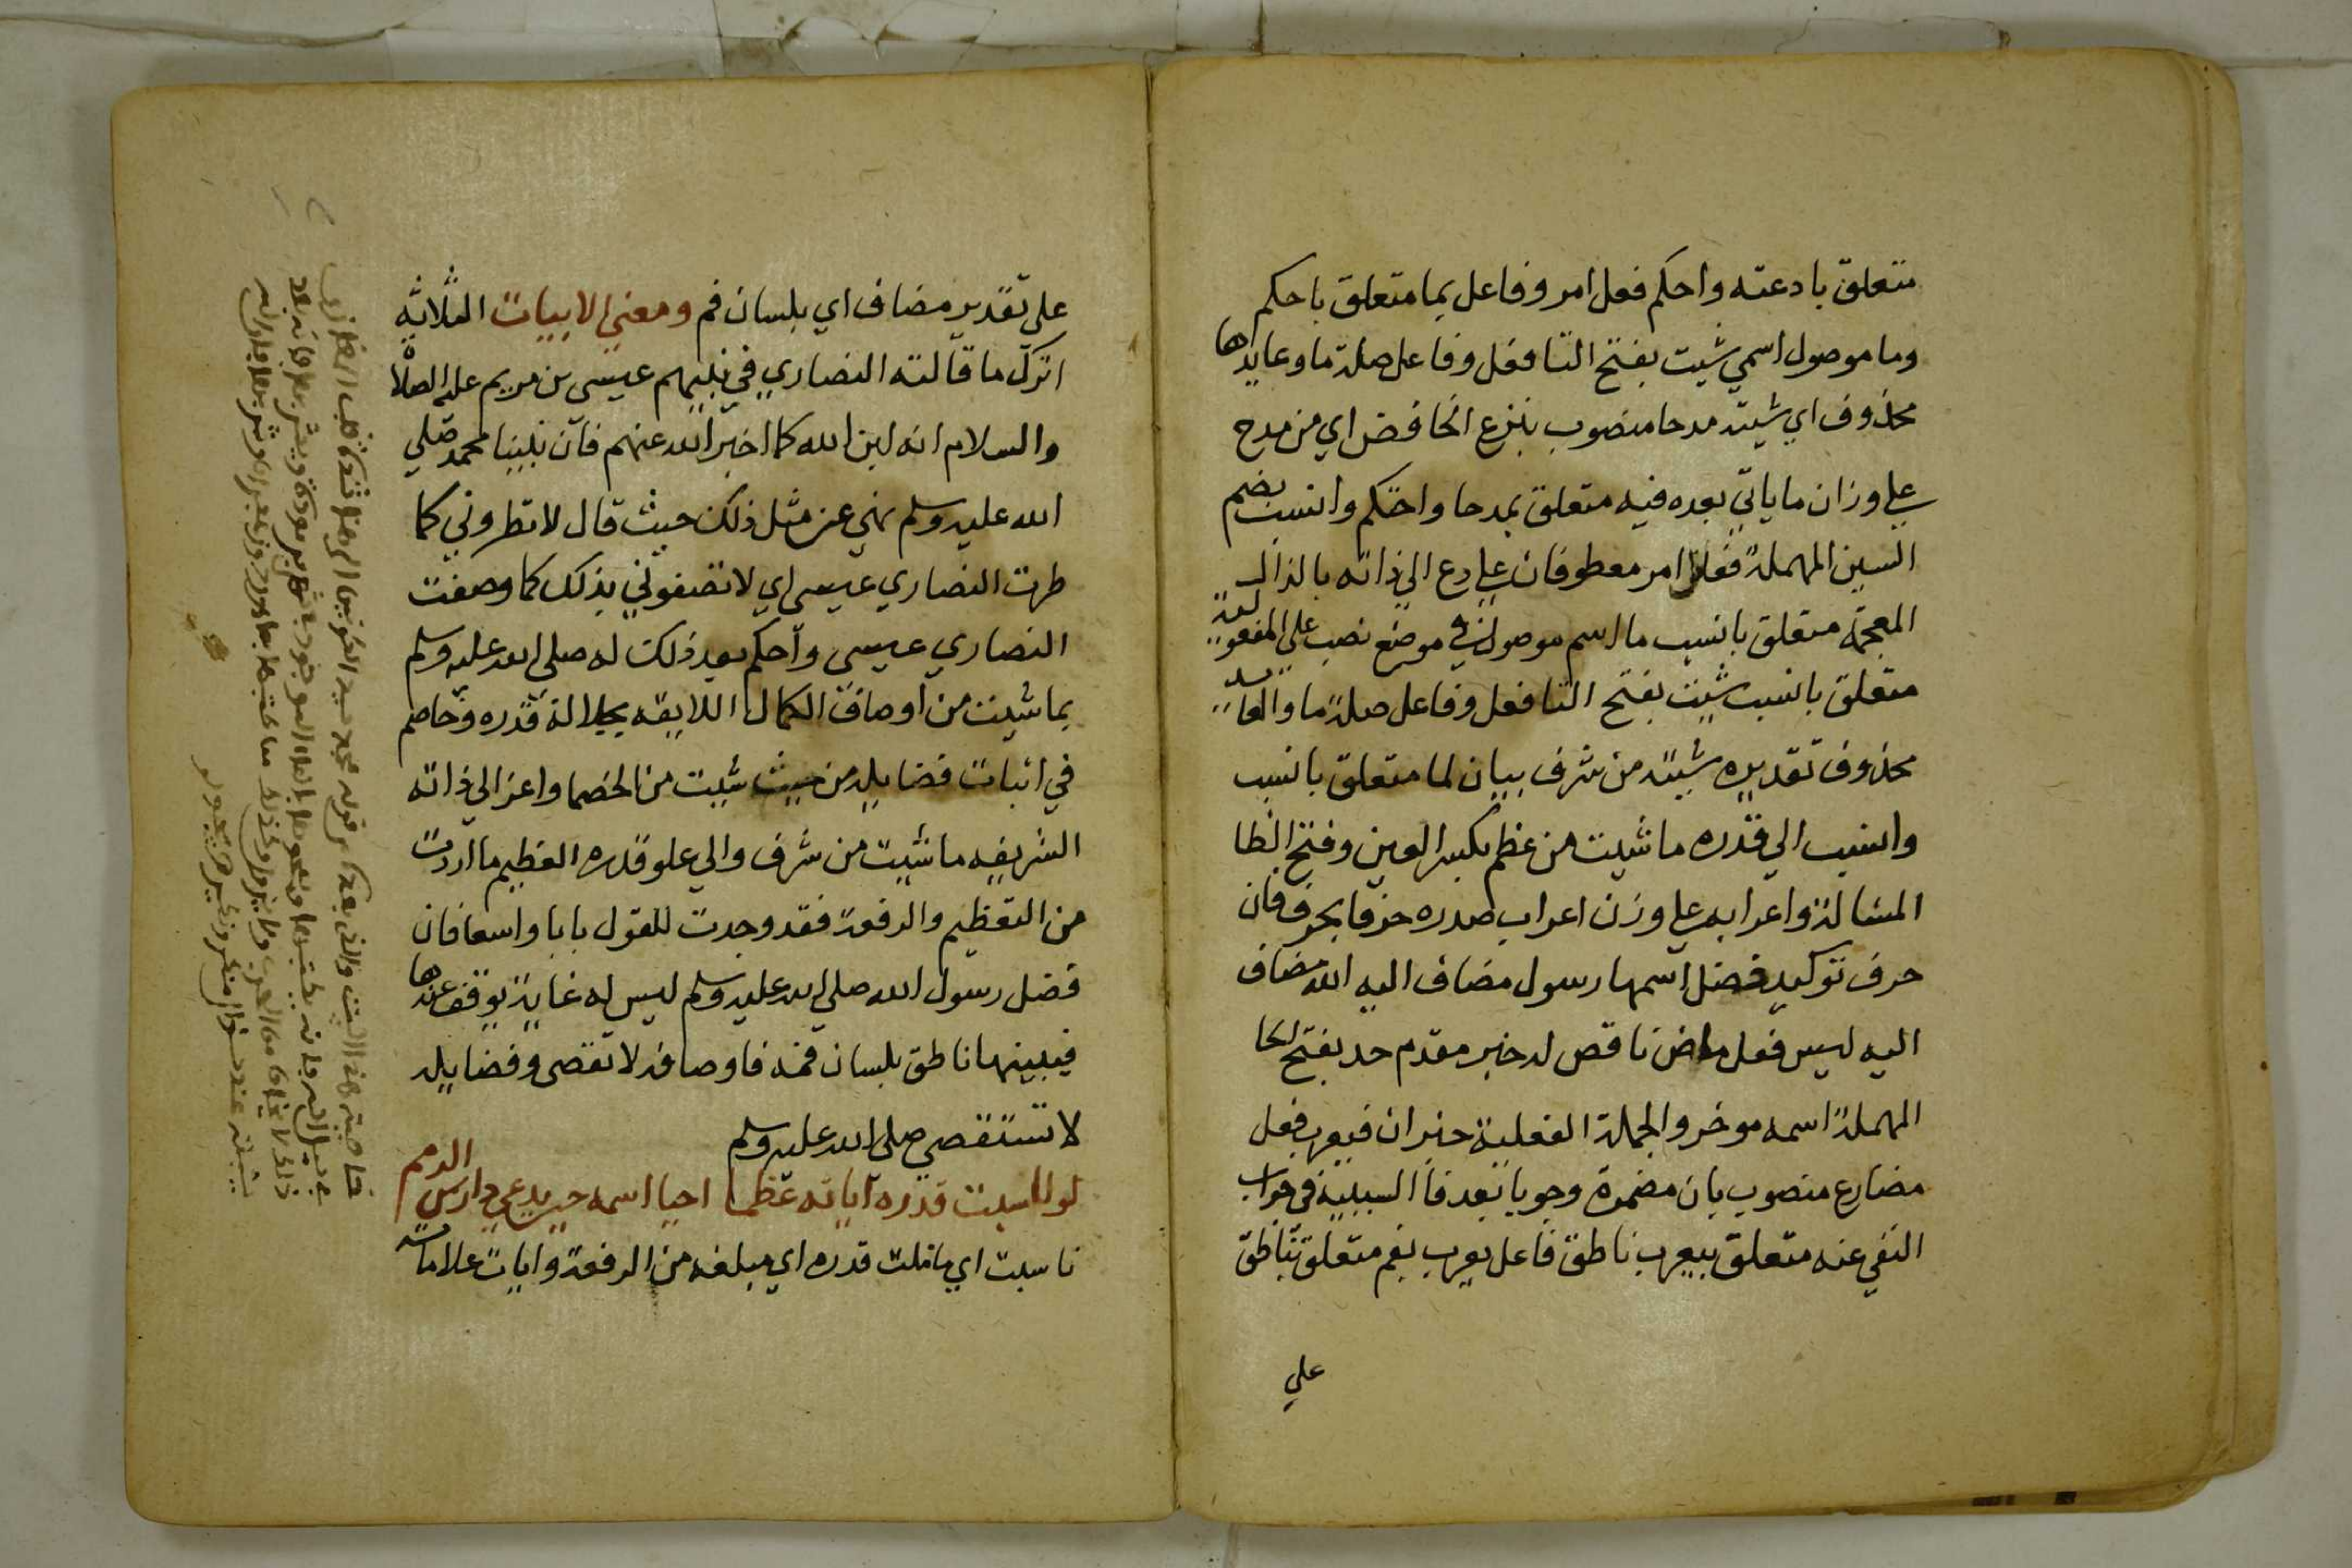 متعلق بادعته واحكم فعل امر وفاعل بما متعلق باحكم
وما موصول اسمي شيت بفتح التا فعل وفاعل صلة ما وعايدها
محذوف اي شيته مدحا منصوب بنزع الخافض اي من مدح
علي وزان ما ياتي بعده فيه متعلق بمدحا واحتكم وانسب بضم
السين المهملة فعلا امر معطوفان علي دع الي ذاته بالذال
المعجمة متعلق بانسب ما اسم موصول في موضع نصب على المفعولية
متعلق بانسب شيت بفتح التا فعل وفاعل صلة ما والعايد
محذوف تقديره شيته من شرف بيان لما متعلق بانسب
وانسب الي قدره ما شيت من عظم بكسر العين وفتح الظا
المشالة واعرابه علي وزن اعراب صدره حرفا بحرف فان
حرف توكيد فضل اسمها رسول مضاف اليه الله مضاف
اليه ليس فعل ماض ناقص له خبر مقدم حد بفتح الحا
المهملة اسمه موخر والجملة الفعلية خبر ان فيعرب فعل
مضارع منصوب بان مضمرة وجوبا بعد فا السببية في جواب
النفي عنه متعلق بيعرب ناطق فاعل يعرب بفم متعلق بناطق
علي
على تقدير مضاف اي بلسان فم ومعني الابيات الثلاثه
اترك ما قالته النصاري في نبيهم عيسى بن مريم عليه الصلاة
والسلام انه ابن الله كما اخبر الله عنهم فان نبينا محمد صلي
الله عليه وسلم نهي عن مثل ذلك حيث قال لا تطروني كما
طرت النصاري عيسى اي لا تصفوني بذلك كما وصفت
النصاري عيسى واحكم بعد ذلك له صلى الله عليه وسلم
بما شيت من اوصاف الكمال اللايقه بجلالة قدره وخاصم
في اثبات فضايله من حيث شيت من الخصما واعز الي ذاته
الشريفه ما شيت من شرف والي علو قدره العظيم ما اردت
من التعظيم والرفعة فقد وجدت للقول بابا واسعا فان
فضل رسول الله صلي الله عليه وسلم ليس له غاية يوقف عندها
فيبينها ناطق بلسان فمه فاوصافه لا تقصى وفضايله
لا تستقصي صلى الله عليه وسلم
لو ناسبت قدره اياته عظما احيا اسمه حين يدعي دارس الرمم
ناسبت اي ماثلت قدره اي مبلغه من الرفعة وايات علاماته